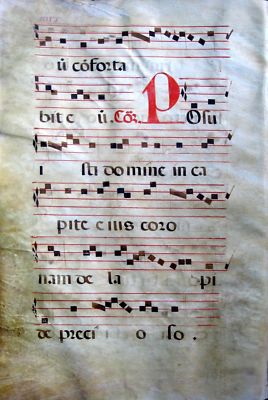 ū cōforta
bit e ū. Cōr. Posui
i sti domine in ca
pite eius coro
nam de la pi
de preci o so.